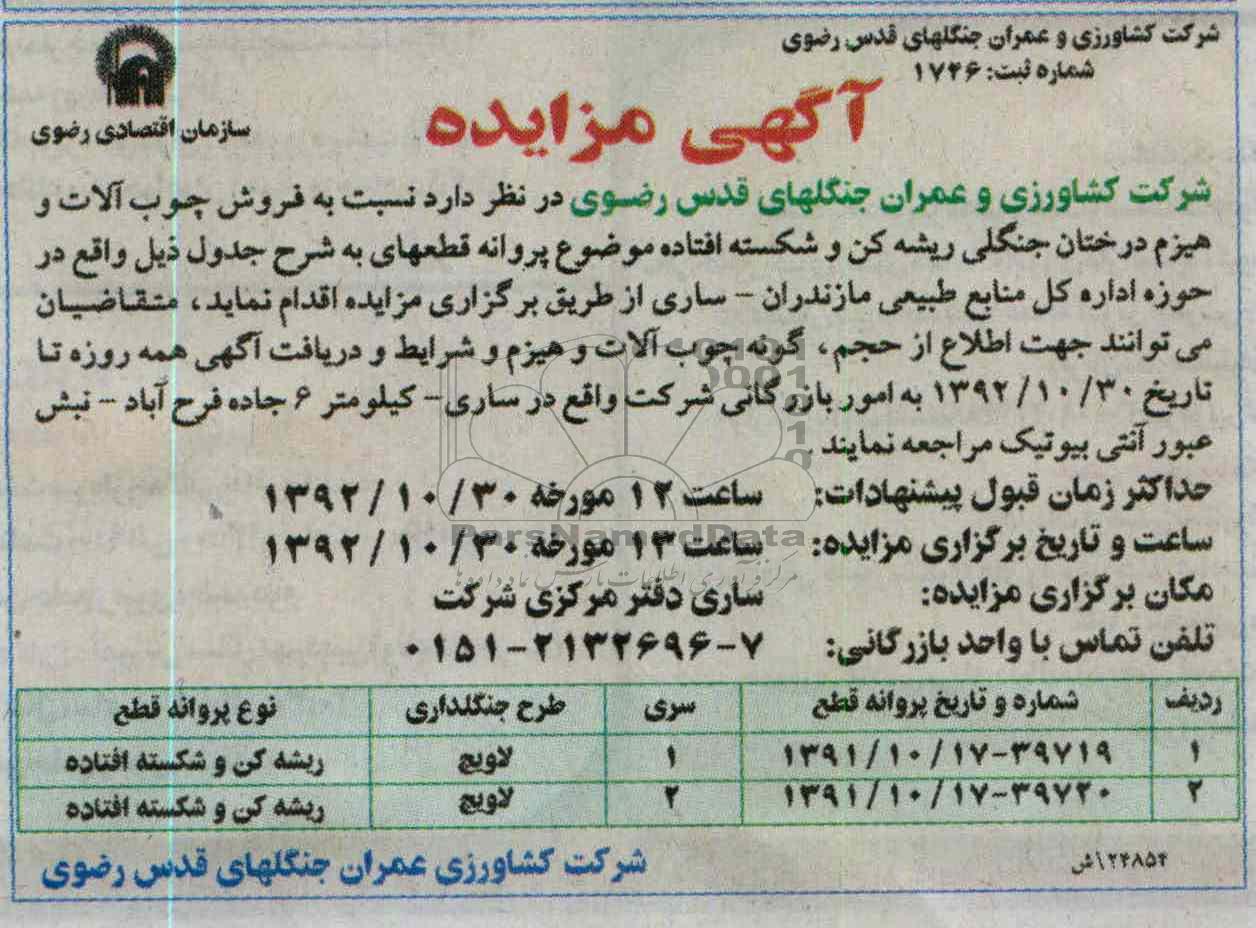 شرکت کشاورزی و عمران جنگلهای قدس رضوی
شماره ثبت: ۱۷۴۶
سازمان اقتصادی رضوی
آگهی مزایده
شرکت کشاورزی و عمران جنگلهای قدس رضوی در نظر دارد نسبت به فروش چوب آلات و
هیزم درختان جنگلی ریشه کن و شکسته افتاده موضوع پروانه قطعهای به شرح جدول ذیل واقع در
حوزه اداره کل منابع طبیعی مازندران - ساری از طریق برگزاری مزایده اقدام نماید، متقاضیان
می توانند جهت اطلاع از حجم، گونه چوب آلات و هیزم و شرایط و دریافت آگهی همه روزه تا
تاریخ ۱۳۹۲/۱۰/۳۰ به امور بازرگانی شرکت واقع در ساری- کیلومتر ۶ جاده فرح آباد - نبش
عبور آنتی بیوتیک مراجعه نمایند.
حداکثر زمان قبول پیشنهادات: ساعت ۱۲ مورخه ۱۳۹۲/۱۰/۳۰
ساعت و تاریخ برگزاری مزایده: ساعت ۱۳ مورخه ۱۳۹۲/۱۰/۳۰
مکان برگزاری مزایده: ساری دفتر مرکزی شرکت
تلفن تماس با واحد بازرگانی: ۷-۰۱۵۱-۲۱۳۲۶۹۶
ردیف شماره و تاریخ پروانه قطع سری طرح جنگلداری نوع پروانه قطع
۱ ۱۳۹۱/۱۰/۱۷-۳۹۷۱۹ ۱ لاویج ریشه کن و شکسته افتاده
۲ ۱۳۹۱/۱۰/۱۷-۳۹۷۲۰ ۲ لاویج ریشه کن و شکسته افتاده
۱۲۴۸۵۴/ش
شرکت کشاورزی عمران جنگلهای قدس رضوی
ParsNamadData
مرکز فرآوری اطلاعات پارس نماد داده‌ها